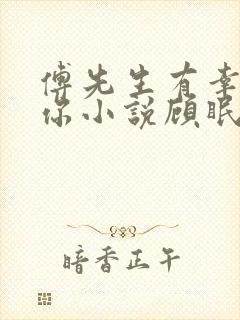 傅先生有幸
你小说顾眠
暗香正午